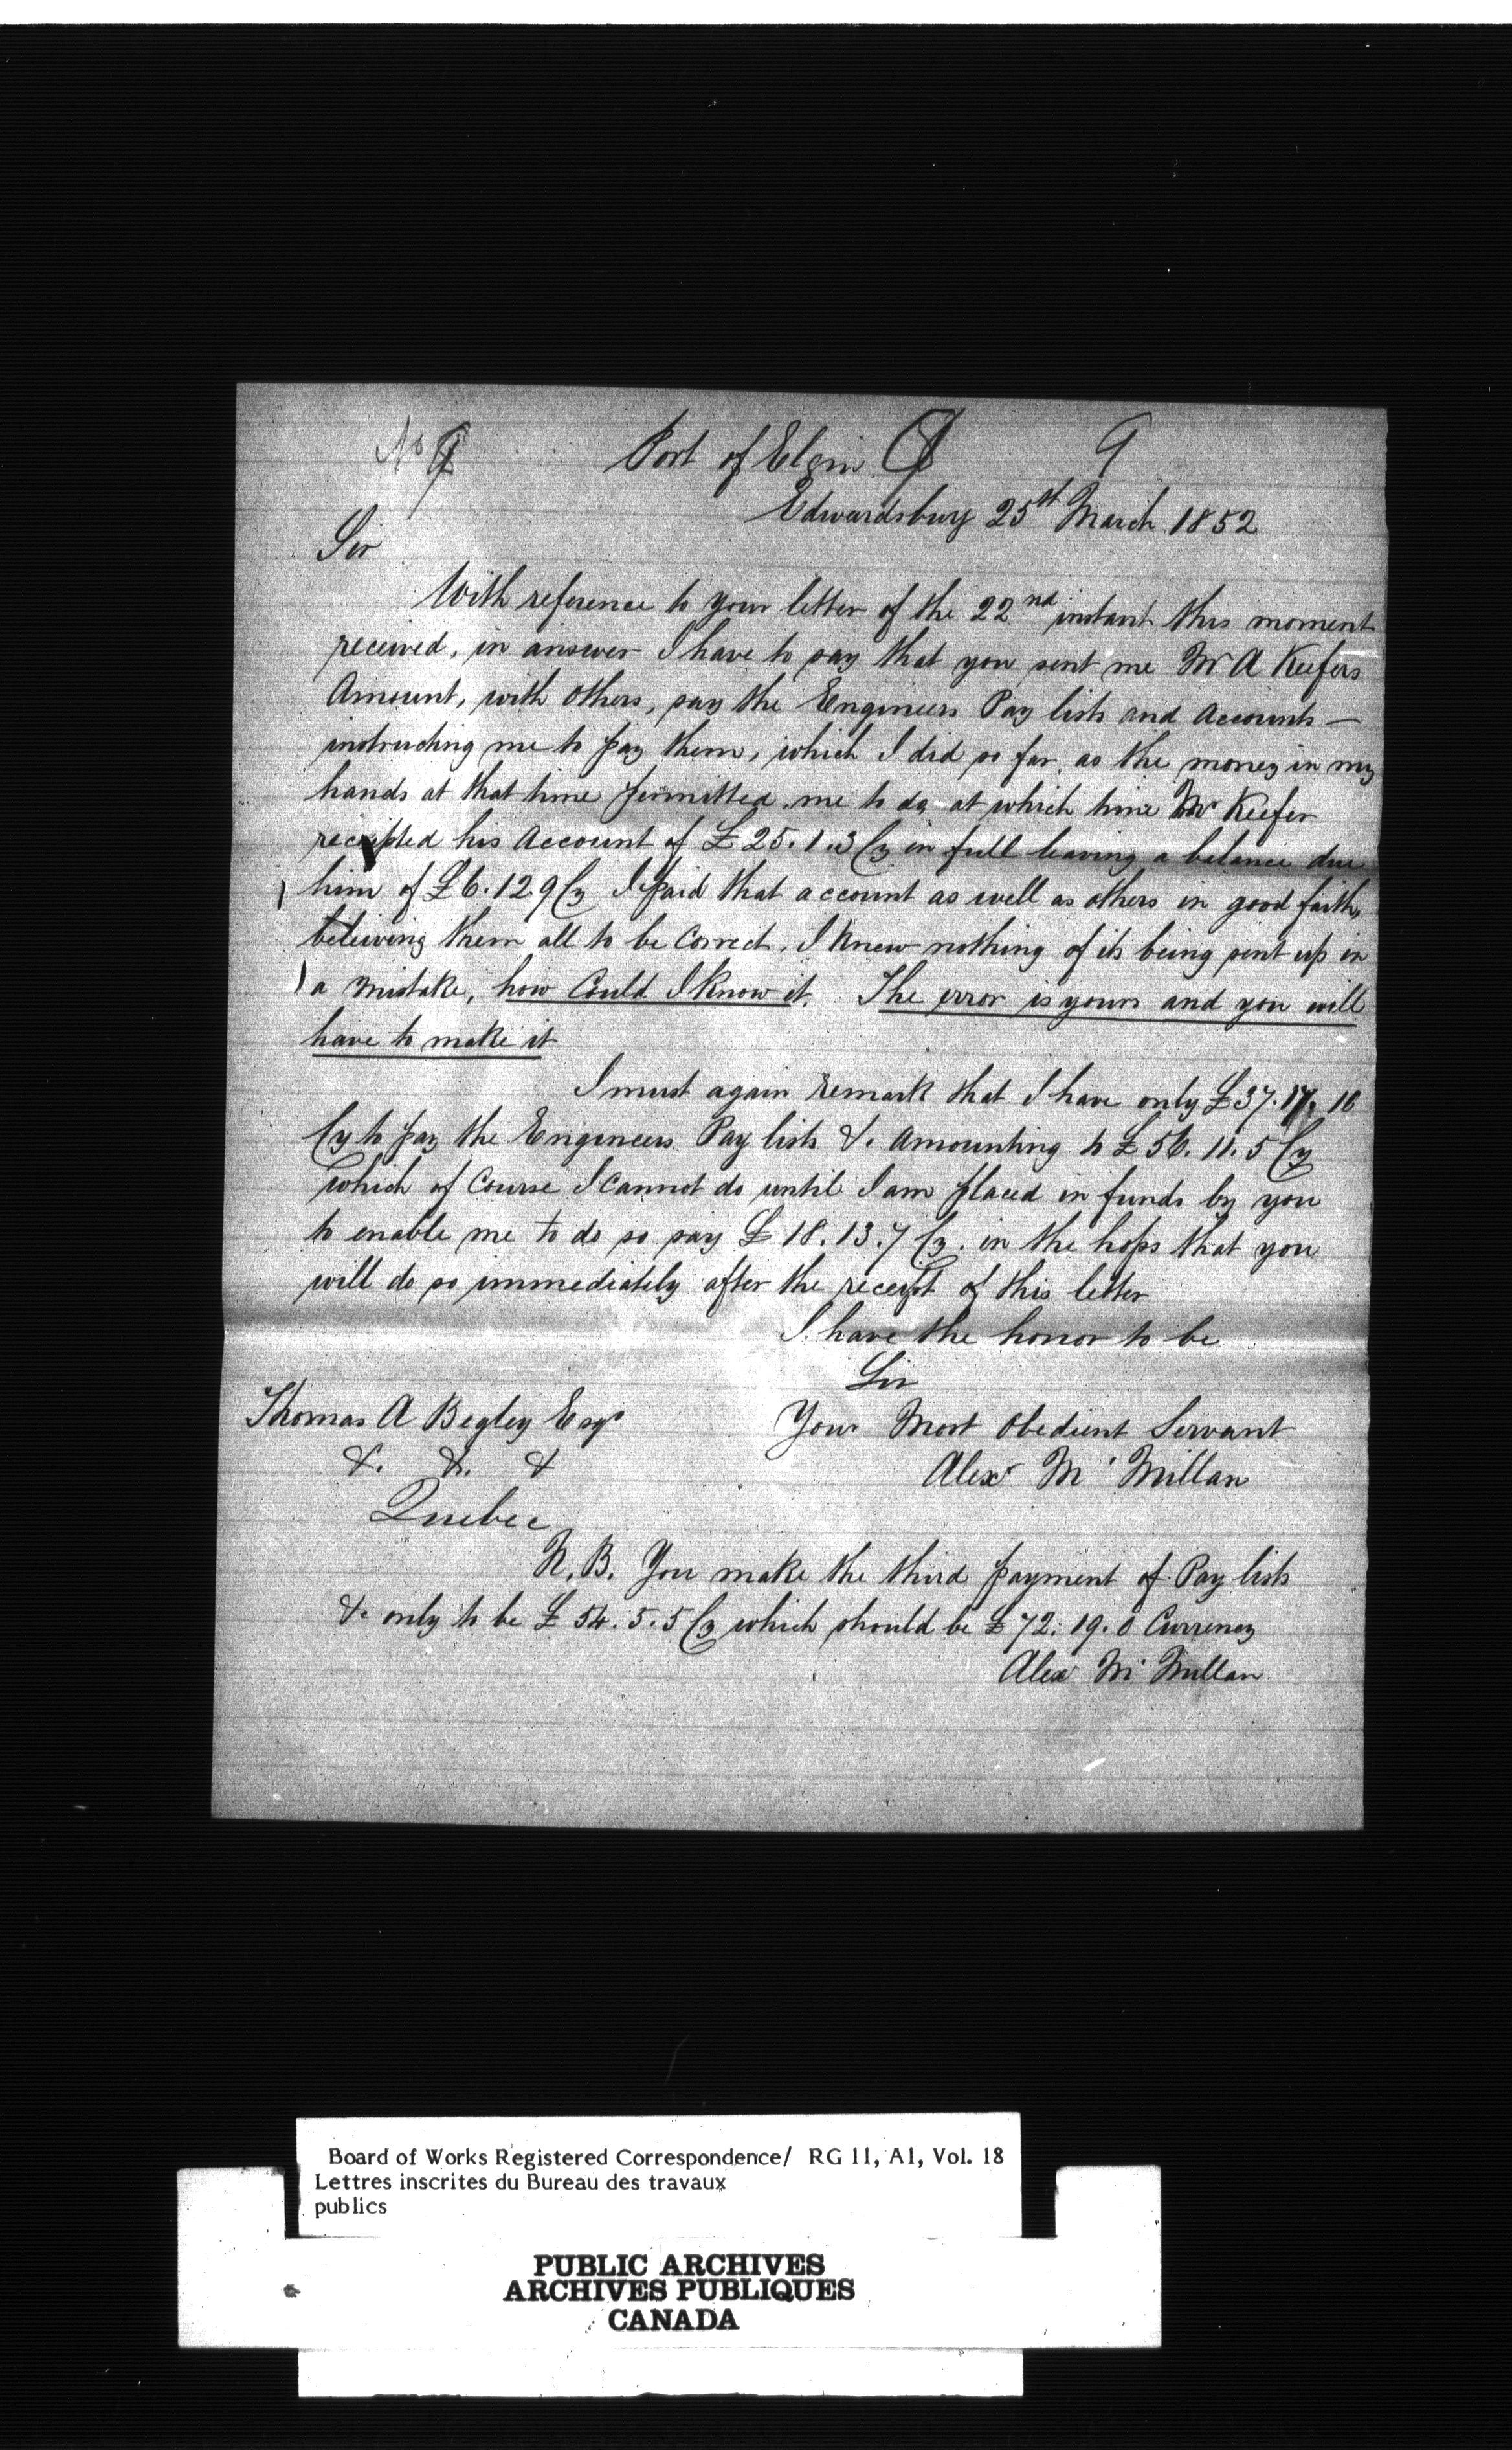 No 9 Port of Elgin 9
Edwardsburg 25th March 1852
Sir
With reference to your letter of the 22nd instant this moment
received, in answer I have to say that you sent me Mr A Keefers
Amount, with others, say the Engineers Pay lists and Accounts —
instructing me to pay them, which I did so far, as the money in my
hands at that time permitted me to do, at which time Mr Keefer
receipted his Account of £25.1.3 Cy in full leaving a balance due
him of £6.12.9 Cy I paid that account as well as others in good faith,
beleiving them all to be correct. I knew nothing of its being sent up in
a mistake, how Could I know it. The error is yours and you will
have to make it
I must again remark that I have only £37.17.10
Cy to pay the Engineers Pay lists &. Amounting to £56.11.5 Cy
which of Course I cannot do until I am placed in funds by you
to enable me to do so say £18.13.7 Cy. in the hops that you
will do so immediately after the receipt of this letter
I have the honor to be
Sir
Thomas A Begley Esqr Your Most Obedient Servant
&. &. & Alexr Mc Millan
Quebec
N.B. You make the third payment of Pay lists
&. only to be £54.5.5 Cy which should be £72.19.0 Currency
Alexr Mc Millan
Board of Works Registered Correspondence/ RG 11, A1, Vol. 18
Lettres inscrites du Bureau des travaux
publics
PUBLIC ARCHIVES
ARCHIVES PUBLIQUES
CANADA